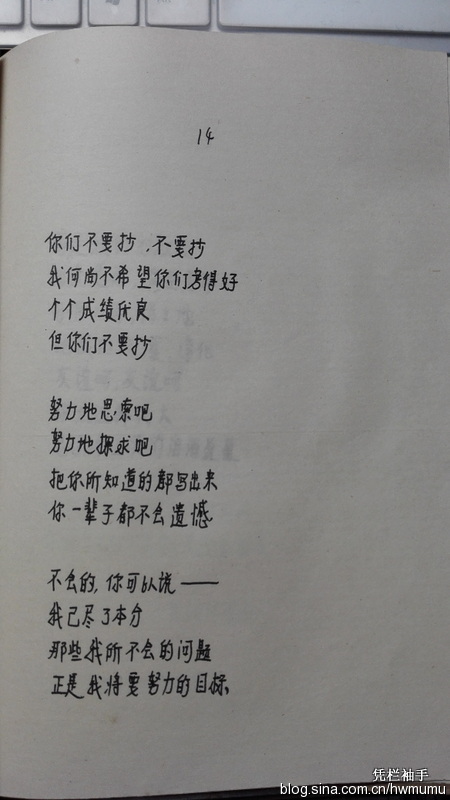 14
你们不要抄，不要抄
我何尚不希望你们考得好
个个成绩优良
但你们不要抄
努力地思索吧
努力地探求吧
把你所知道的都写出来
你一辈子都不会遗憾
不会的，你可以说——
我已尽了本分
那些我所不会的问题
正是我将要努力的目标
凭栏袖手
blog.sina.com.cn/hwmumu